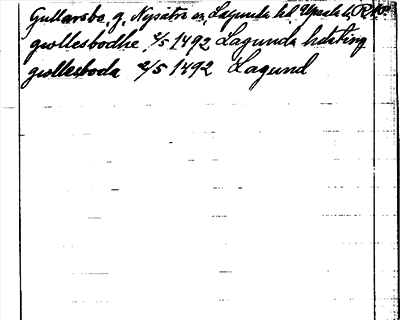 Gullarsbo, g. Nysätra sn, Lagunda hd. Upsala l.
gwllesbodhe 2/5 1492 Lagunda hdsting
gwllesboda 2/5 1492 Lagund